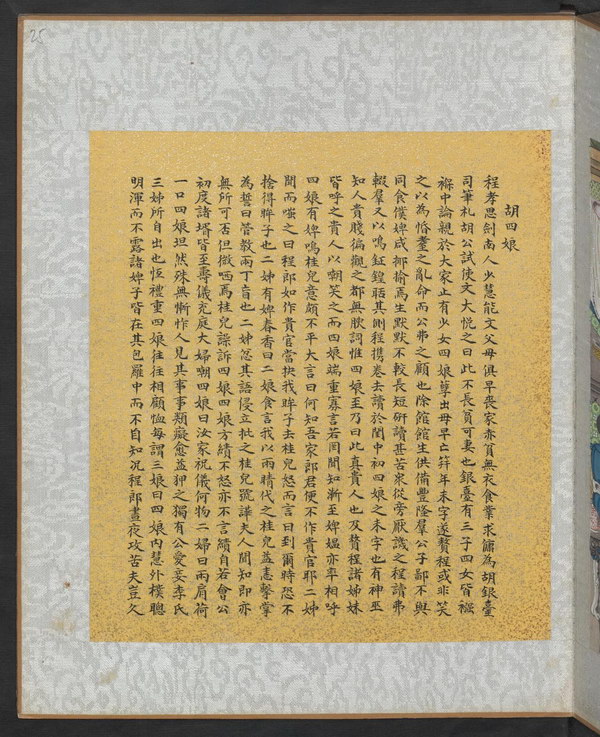 胡四娘
程孝思劍南人少慧能文父母俱早喪家亦貧無衣食業求傭為胡銀臺
司筆札胡公試使文大悅之曰此不長貧可妻也銀臺有三子四女皆襁
褓中論親於大家止有少女四娘孽出母早亡笄年未字遂贅程或非笑
之以為惛耄之亂命而公弗之顧也除館館生供備豐隆羣公子鄙不與
同食僕婢咸揶揄焉生默默不較長短研讀甚苦衆從旁厭譏之程讀弗
輟羣又以鳴鉦鍠聒其側程携卷去讀於閨中初四娘之未字也有神巫
知人貴賤徧觀之都無腴詞惟四娘至乃曰此真貴人也及贅程諸姊妹
皆呼之貴人以嘲笑之而四娘端重寡言若罔聞知漸至婢媼亦率相呼
四娘有婢鳴桂兒意頗不平大言曰何知吾家郎君便不作貴官耶二姊
聞而嗤之曰程郎如作貴官當抉我眸子去桂兒怒而言曰到爾時恐不
捨得眸子也二姊有婢春香曰二娘食言我以兩睛代之桂兒益恚擊掌
為誓曰管教兩丁盲也二姊忿其語侵立批之桂兒號譁夫人聞知即亦
無所可否但微哂焉桂兒譟訴四娘四娘方績不怒亦不言績自若會公
初度諸壻皆至壽儀充庭大婦嘲四娘曰汝家祝儀何物二婦曰兩肩荷
一口四娘坦然殊無慚怍人見其事事類癡愈益狎之獨有公愛妾李氏
三姊所自出也恒禮重四娘往往相顧恤每謂三娘曰四娘內慧外樸聰
明渾而不露諸婢子皆在其包羅中而不自知況程郎晝夜攻苦夫豈久
25